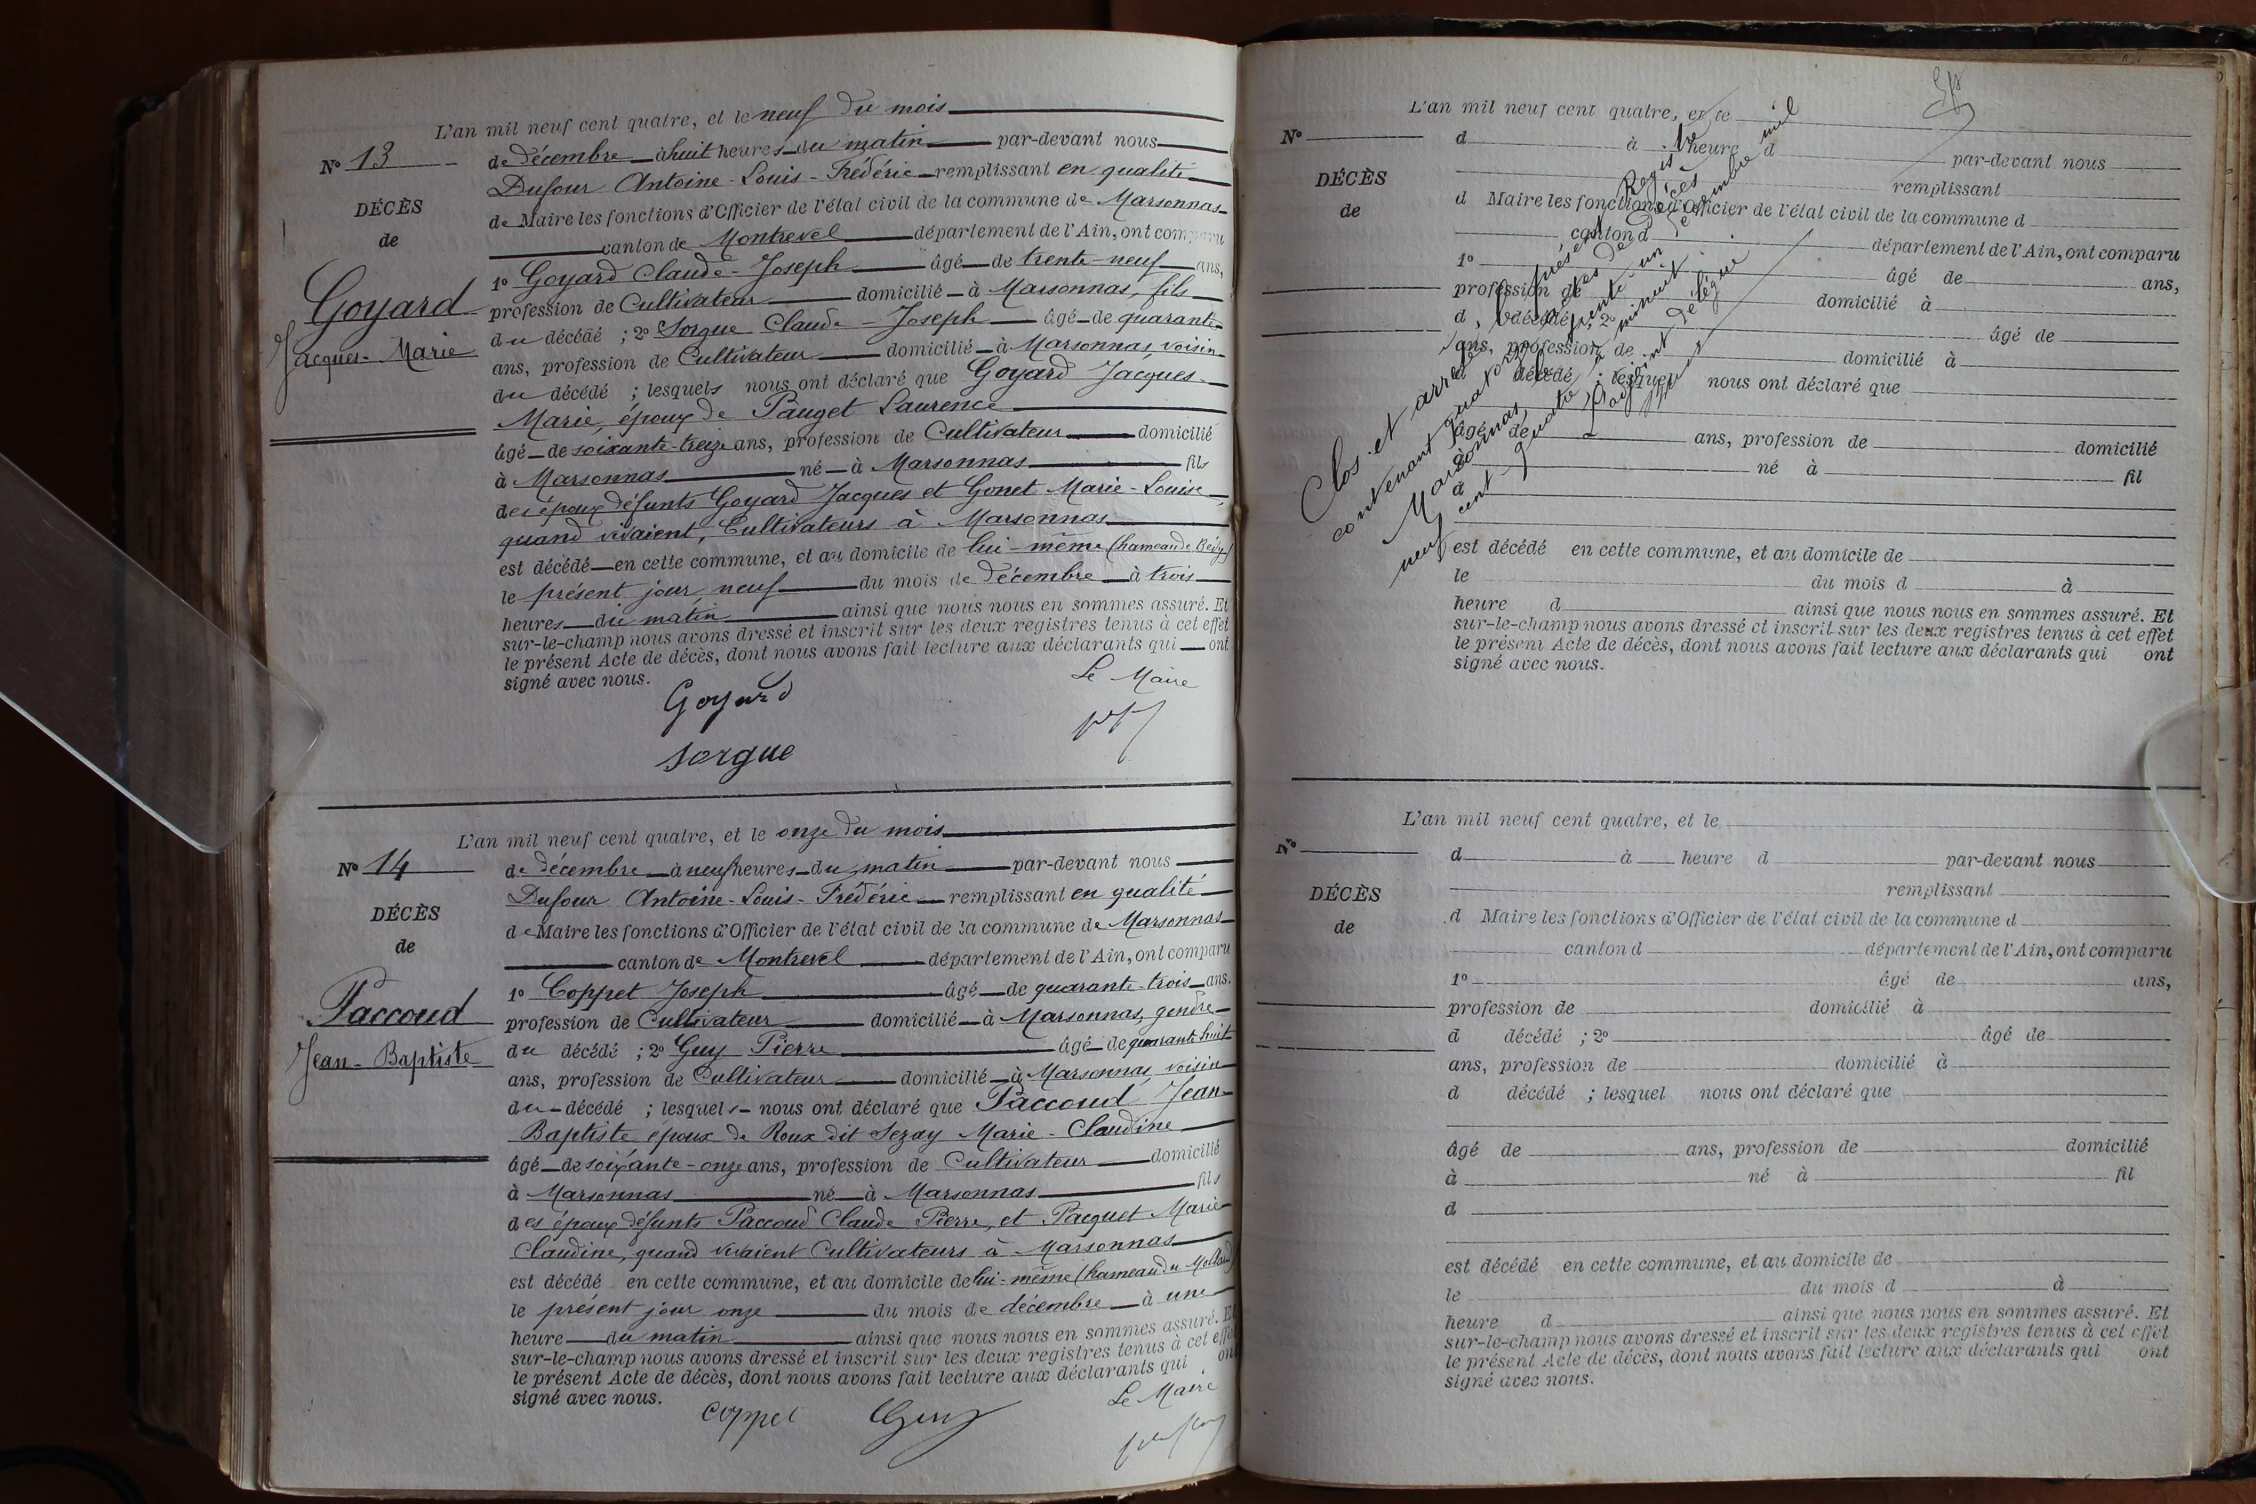 L'an mil neuf cent quatre, et le neuf du mois
N° 13
de décembre à huit heures du matin par-devant nous
Dufour Antoine-Louis-Frédéric remplissant en qualité
DÉCÈS
de Maire les fonctions d'Officier de l'état civil de la commune de Marsonnas
de
canton de Montrevel département de l'Ain, ont comparu
1° Goyard Claude-Joseph âgé de trente-neuf ans,
Goyard
profession de Cultivateur domicilié à Marsonnas, fils
du décédé ; 2° Sorgue Claude-Joseph âgé de quarante
Jacques-Marie
ans, profession de Cultivateur domicilié à Marsonnas, voisin
du décédé ; lesquels nous ont déclaré que Goyard Jacques-
Marie, époux de Pauget Laurence
âgé de soixante-treize ans, profession de Cultivateur domicilié
à Marsonnas né à Marsonnas fils
des époux défunts Goyard Jacques et Gonet Marie-Louise
quand vivaient, Cultivateurs à Marsonnas
est décédé en cette commune, et au domicile de lui-même (hameau de
le présent jour, neuf du mois de décembre à trois
heures du matin ainsi que nous nous en sommes assuré. Et
sur-le-champ nous avons dressé et inscrit sur les deux registres tenus à cet effet
le présent Acte de décès, dont nous avons fait lecture aux déclarants qui ont
signé avec nous.
Le Maire
Goyard
Sorgue
L'an mil neuf cent quatre, et le onze du mois
N° 14
de décembre à neuf heures du matin par-devant nous
Dufour Antoine-Louis-Frédéric remplissant en qualité
DÉCÈS
de Maire les fonctions d'Officier de l'état civil de la commune de Marsonnas
de
canton de Montrevel département de l'Ain, ont comparu
1° Coppet Joseph âgé de quarante-trois ans.
Paccoud
profession de Cultivateur domicilié à Marsonnas, gendre
Jean-Baptiste
du décédé ; 2° Guy Pierre âgé de quarante huit
ans, profession de Cultivateur domicilié à Marsonnas, voisin
du décédé ; lesquels nous ont déclaré que Paccoud Jean-
Baptiste époux de Roux dit Sezay Marie-Claudine
âgé de soixante-onze ans, profession de Cultivateur domicilié
à Marsonnas né à Marsonnas fils
des époux défunts Paccoud Claude Pierre, et Pacquet Marie
Claudine, quand vivaient Cultivateurs à Marsonnas
est décédé en cette commune, et au domicile de lui-même (hameau du
le présent jour onze du mois de décembre à une
heure du matin ainsi que nous nous en sommes assuré. Et
sur-le-champ nous avons dressé et inscrit sur les deux registres tenus à cet effet
le présent Acte de décès, dont nous avons fait lecture aux déclarants qui ont
signé avec nous.
Le Maire
Coppet Guy
L'an mil neuf cent quatre, et le
N°
d à heure d par-devant nous
remplissant
DÉCÈS
d Maire les fonctions d'Officier de l'état civil de la commune d
de
canton d département de l'Ain, ont comparu
1° âgé de ans,
profession de domicilié à
d décédé ; 2° âgé de
ans, profession de domicilié à
d décédé ; lesquel nous ont déclaré que
âgé de ans, profession de domicilié
à né à fil
d
est décédé en cette commune, et au domicile de
le du mois d à
heure d ainsi que nous nous en sommes assuré. Et
sur-le-champ nous avons dressé et inscrit sur les deux registres tenus à cet effet
le présent Acte de décès, dont nous avons fait lecture aux déclarants qui ont
signé avec nous.
Clos et arrêté le présent Registre
contenant quatorze actes de Décès
Marsonnas, le trente-un Décembre mil
neuf cent quatre à minuit
L'adjoint délégué
L'an mil neuf cent quatre, et le
N°
d à heure d par-devant nous
remplissant
DÉCÈS
d Maire les fonctions d'Officier de l'état civil de la commune d
de
canton d département de l'Ain, ont comparu
1° âgé de ans,
profession de domicilié à
d décédé ; 2° âgé de
ans, profession de domicilié à
d décédé ; lesquel nous ont déclaré que
âgé de ans, profession de domicilié
à né à fil
d
est décédé en cette commune, et au domicile de
le du mois d à
heure d ainsi que nous nous en sommes assuré. Et
sur-le-champ nous avons dressé et inscrit sur les deux registres tenus à cet effet
le présent Acte de décès, dont nous avons fait lecture aux déclarants qui ont
signé avec nous.